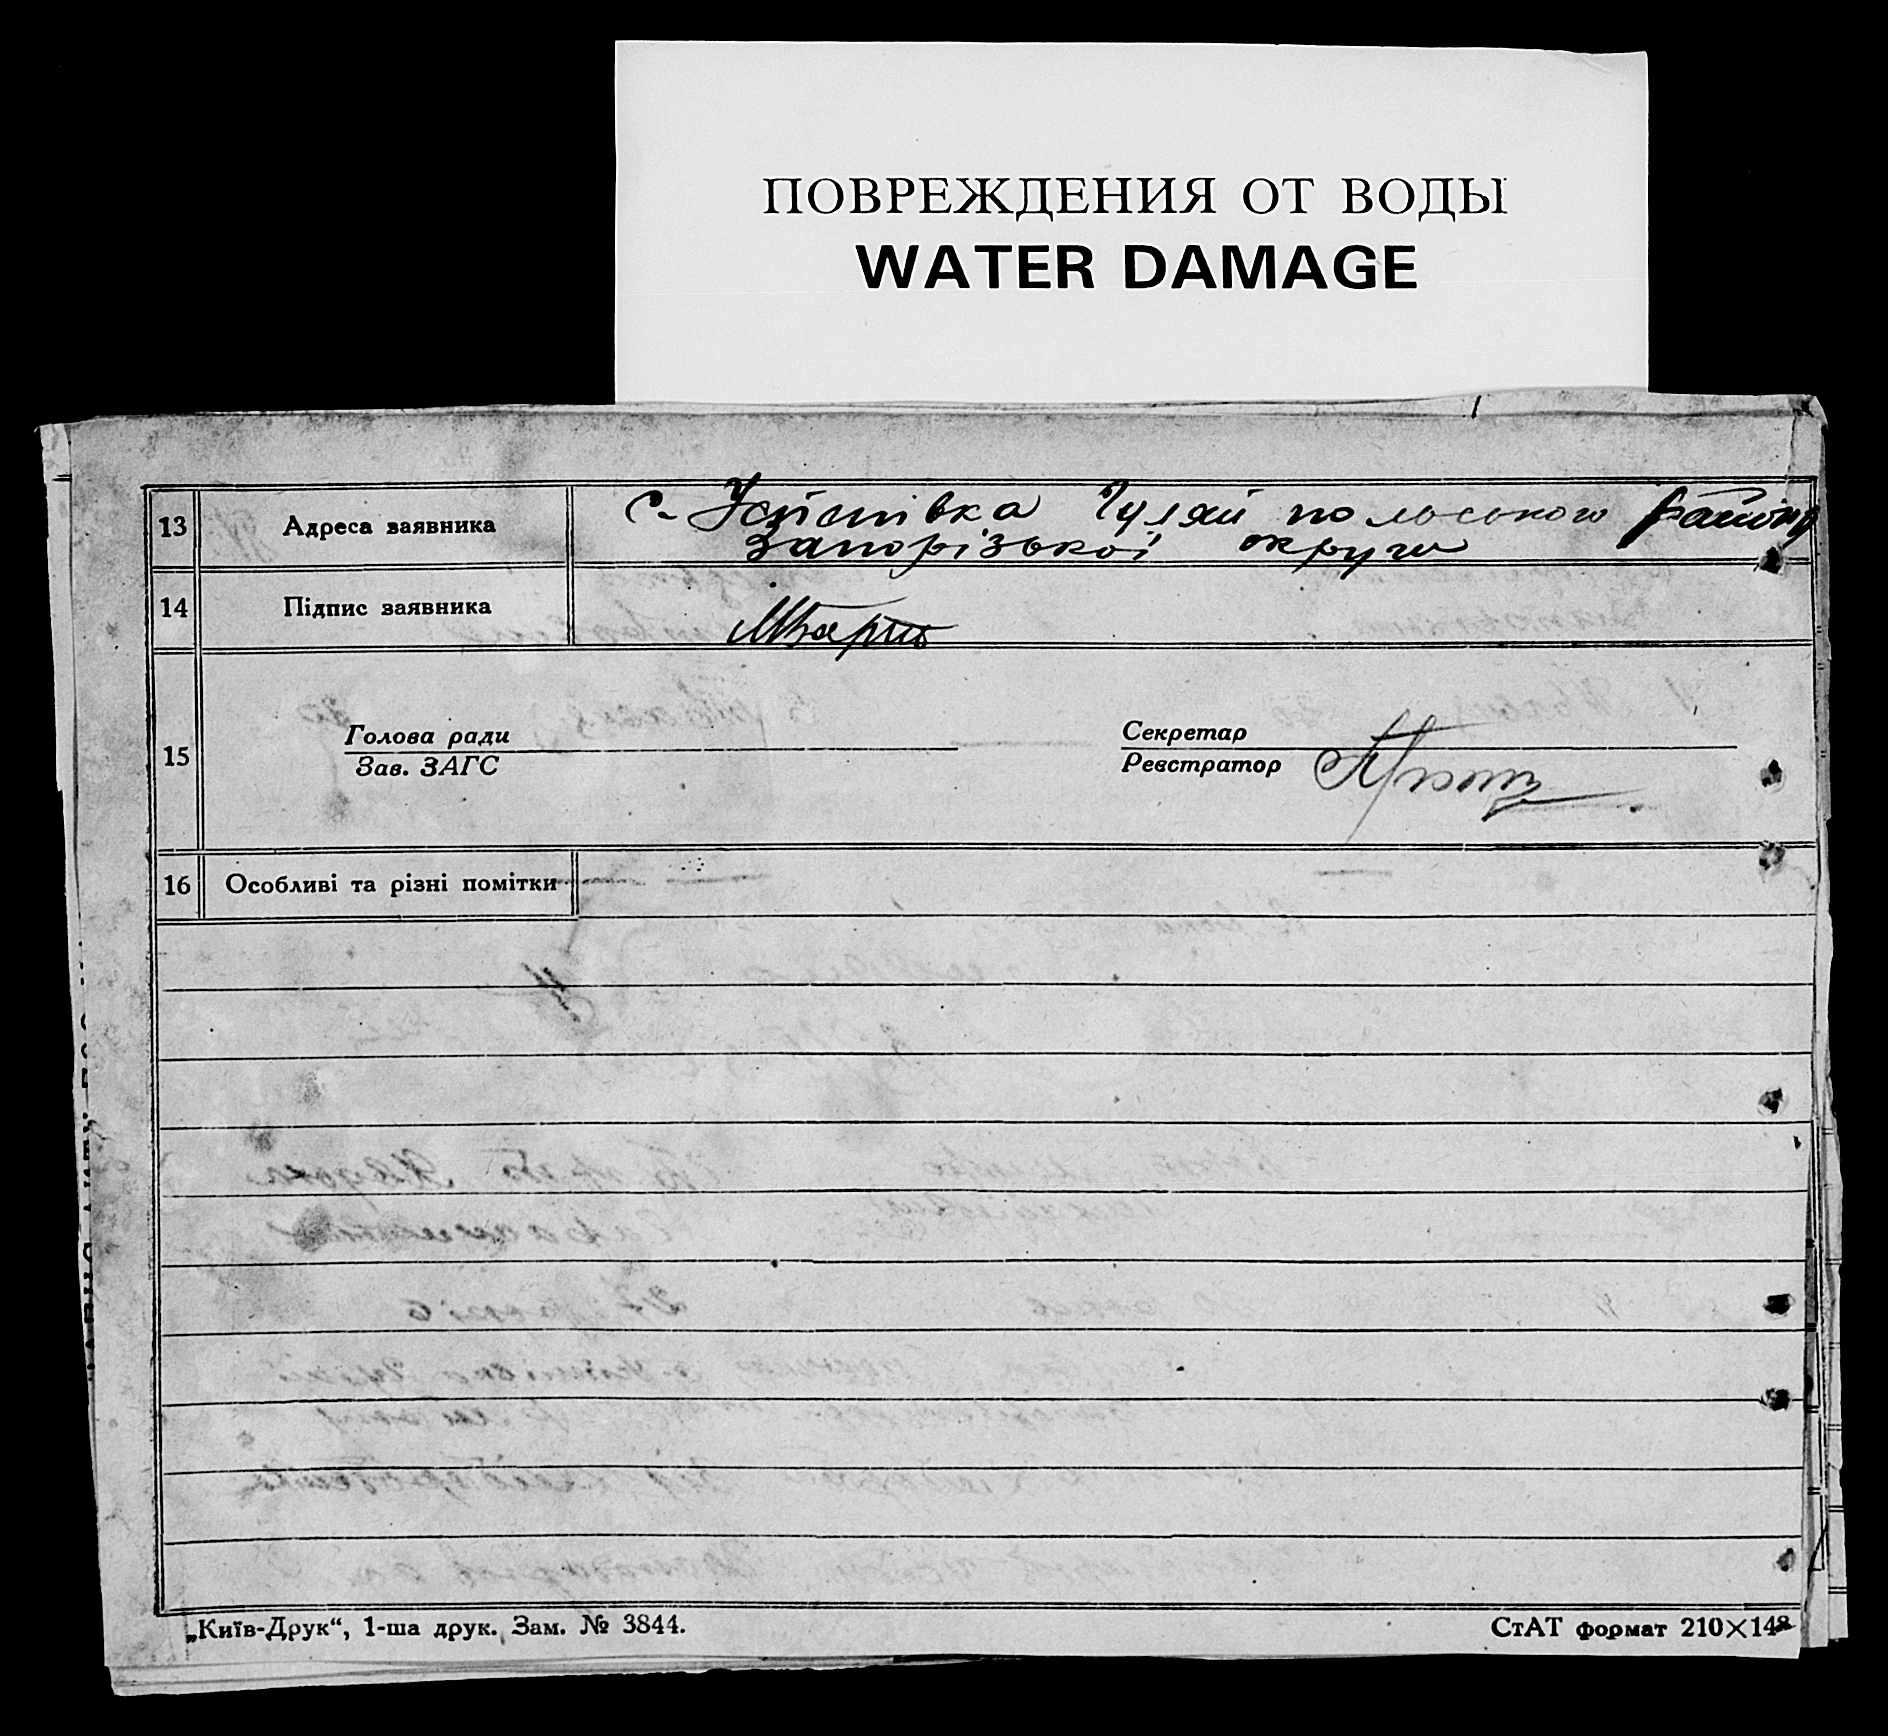 ПОВРЕЖДЕНИЯ ОТ ВОДЫ
WATER DAMAGE
13 Адреса заявника с. Успенівка Гуляй польського району
Запорізької округи
14 Підпис заявника
15 Голова ради
Зав. ЗАГС
Секретар
Реєстратор
16 Особливі та різні помітки
„Київ-Друк“, 1-ша друк. Зам. № 3844.
СтАТ формат 210×148